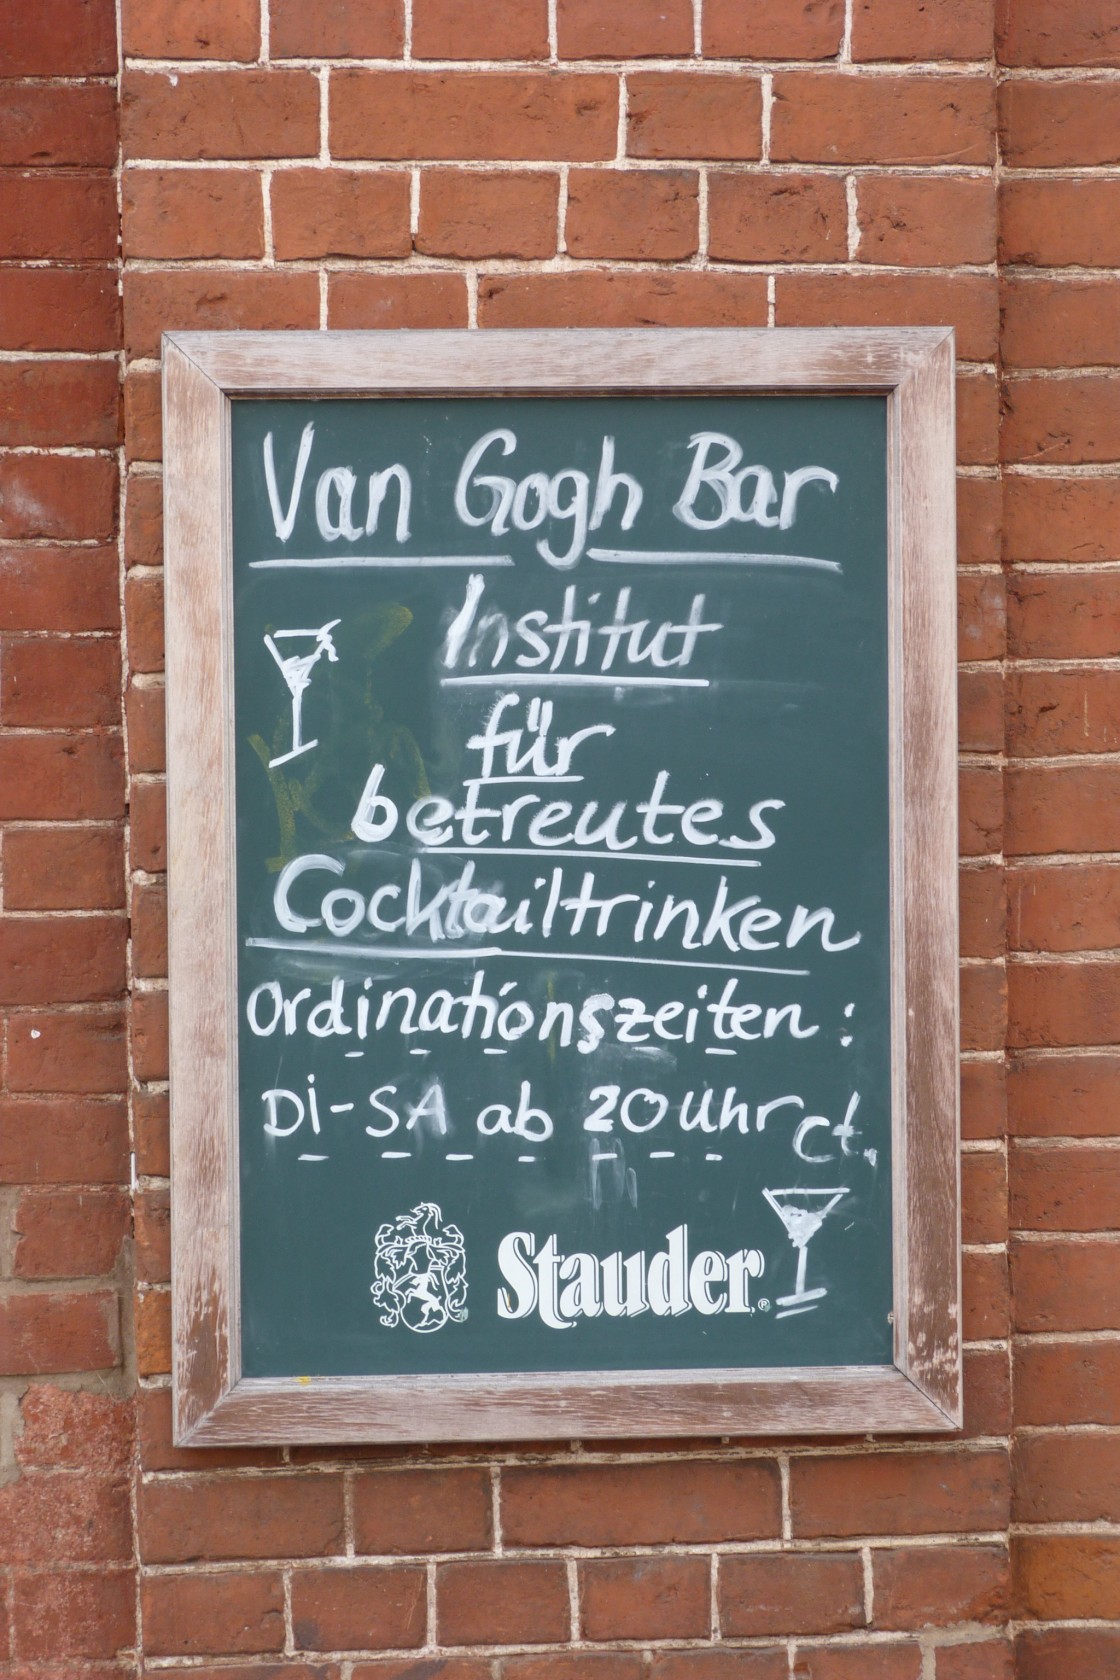 Van Gogh Bar
Institut
für
betreutes
Cocktailtrinken
Ordinationszeiten:
Di-SA ab 20 Uhr ct.
Stauder